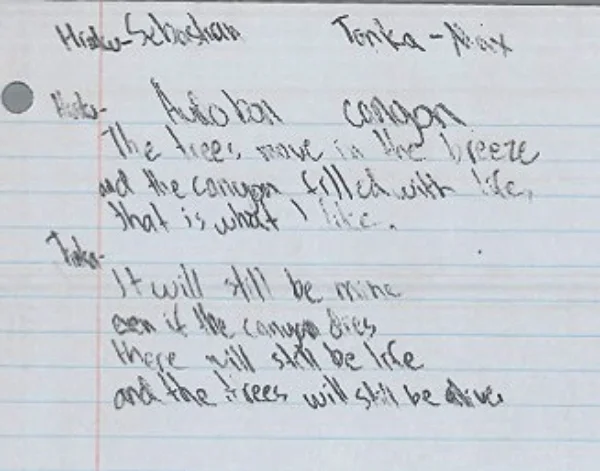 Haiku-Sebastian Tanka-Max
Haiku- Audoban canyon
The trees move in the breeze
and the canyon filled with life,
that is what I like.
Tanka-
It will still be mine
even if the canyon dies
there will still be life
and the trees will still be alive